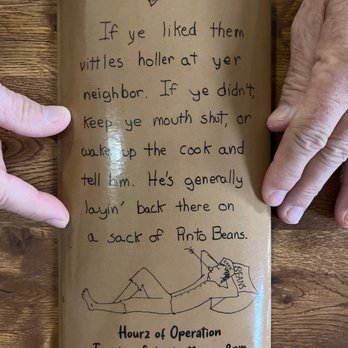 If ye liked them
vittles holler at yer
neighbor. If ye didn't,
keep ye mouth shut, or
wake up the cook and
tell him. He's generally
layin' back there on
a sack of Pinto Beans.
BEANS
Hourz of Operation